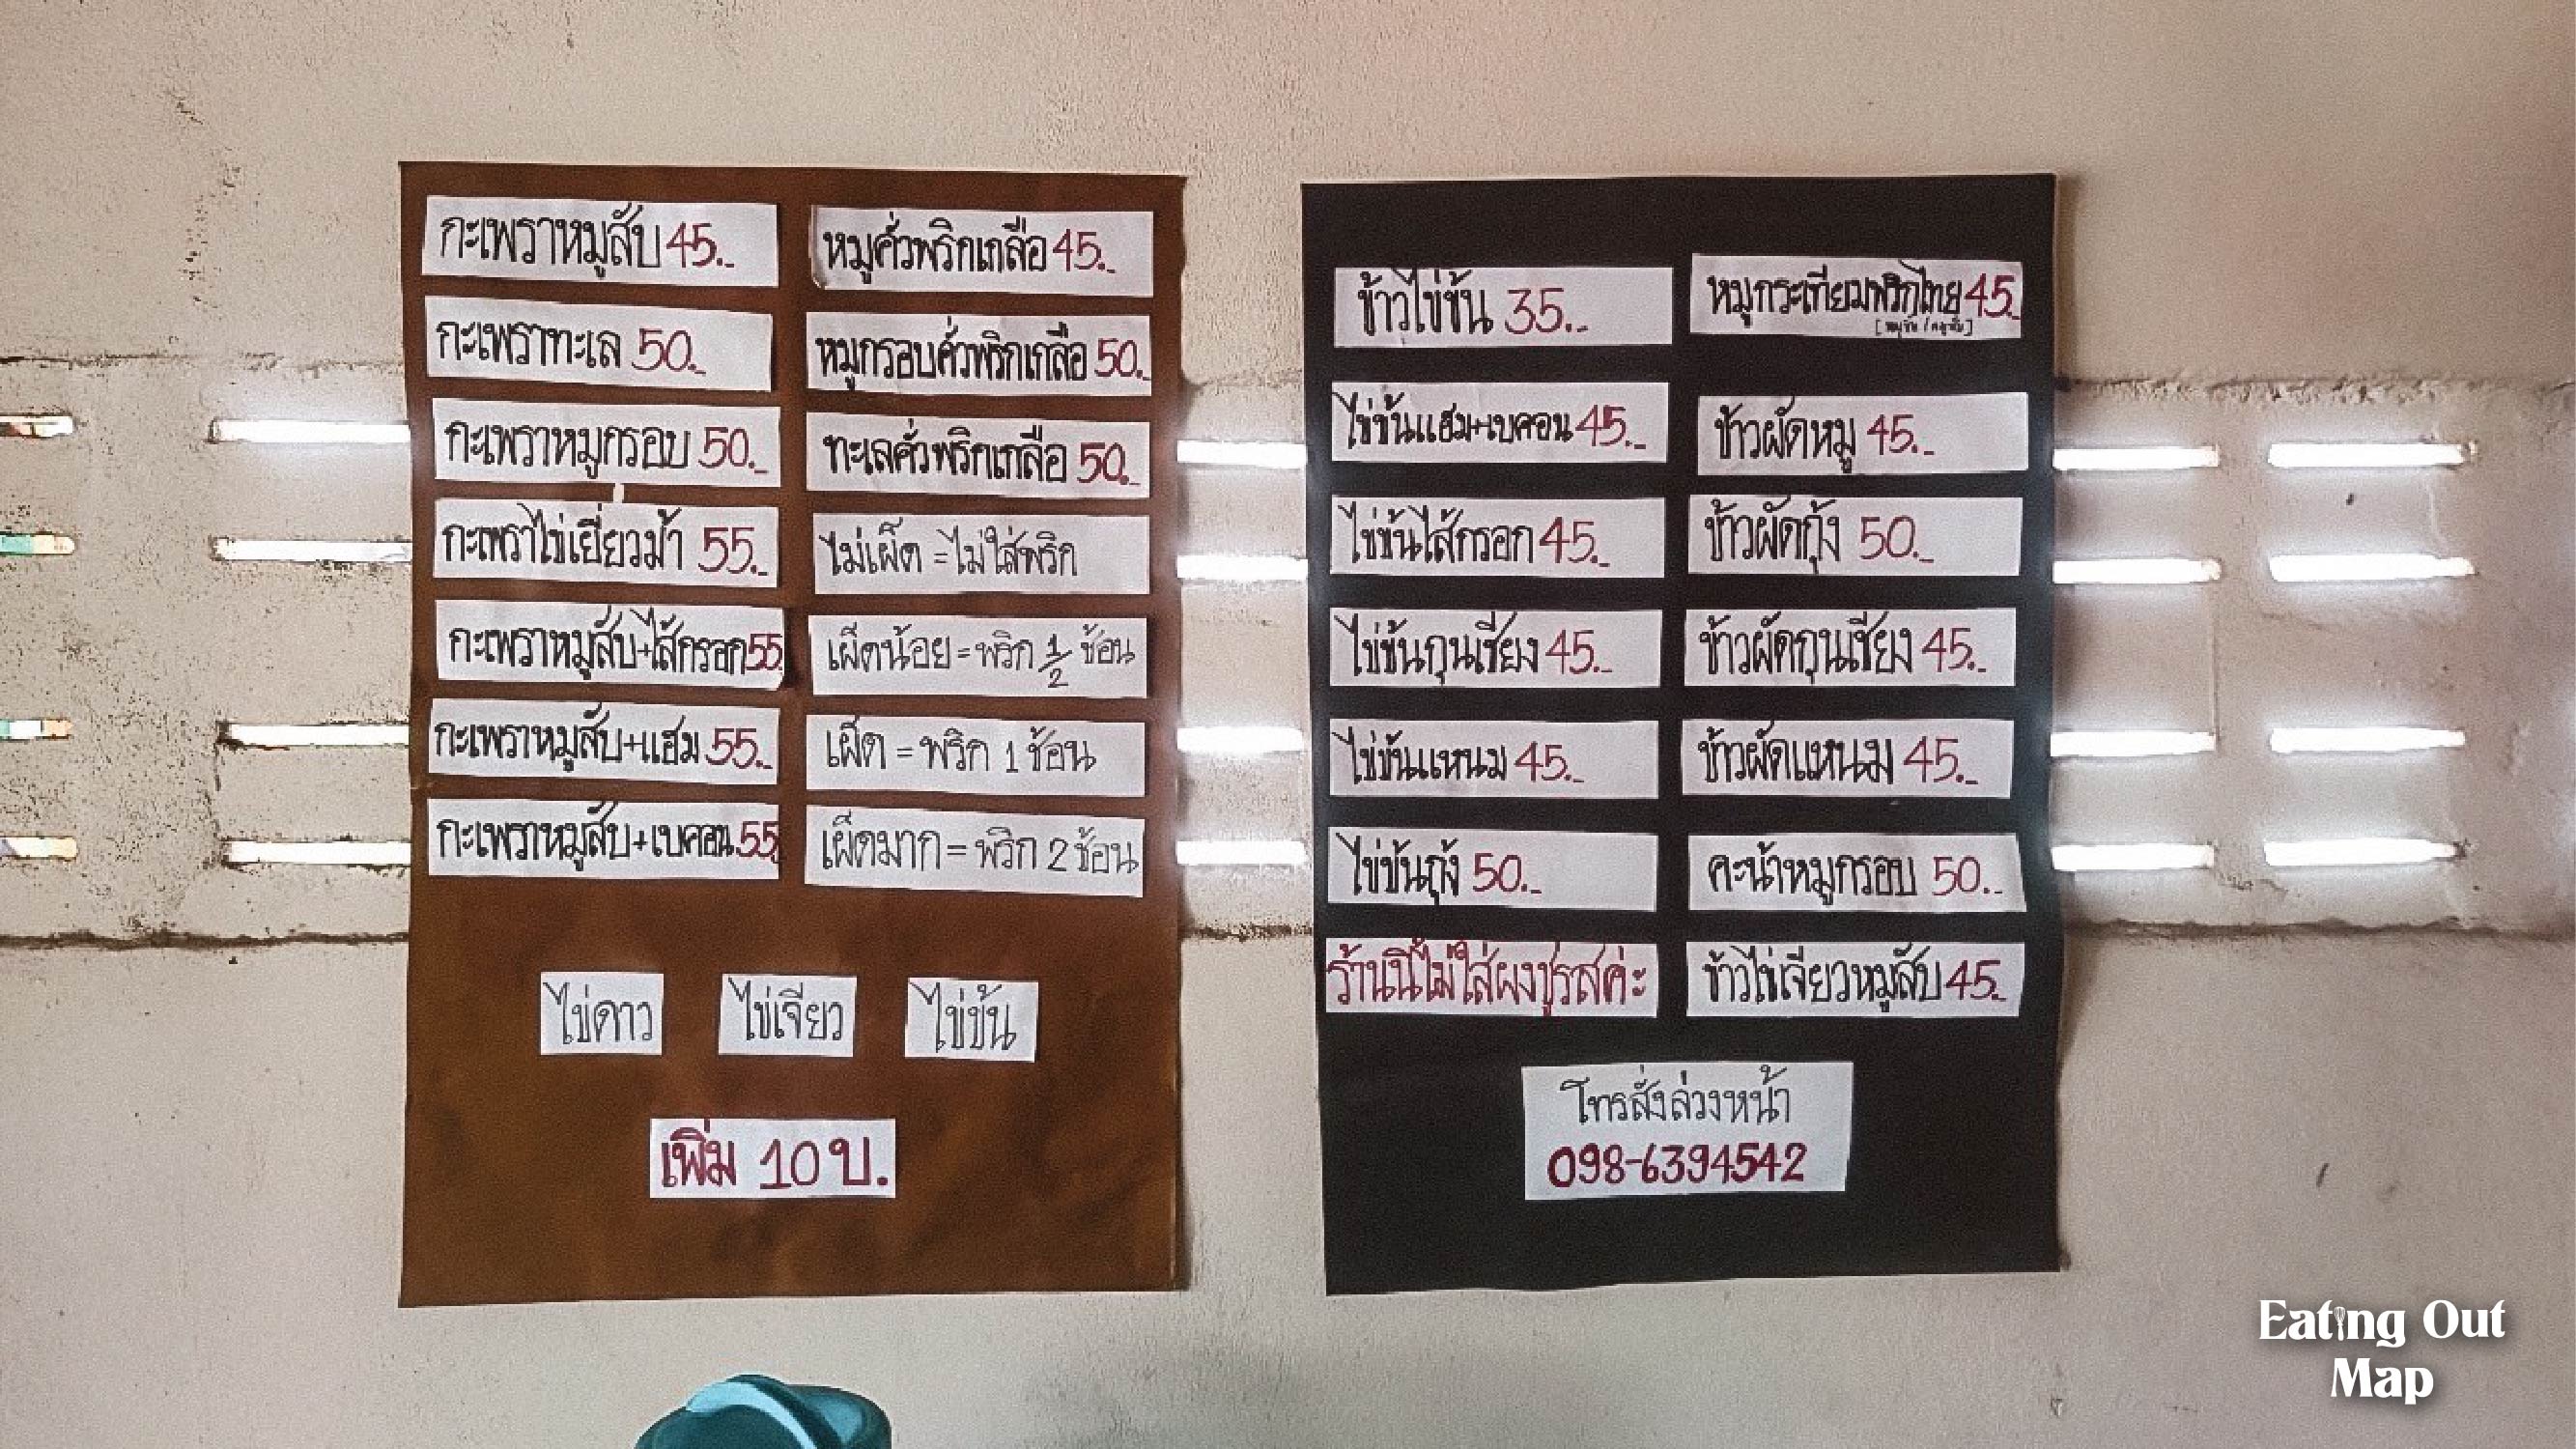 กะเพราหมูสับ 45.-
กะเพราทะเล 50.-
กะเพราหมูกรอบ 50.-
กะเพราไข่เยี่ยวม้า 55.-
กะเพราหมูสับ+ไส้กรอก 55.
กะเพราหมูสับ+แฮม 55.-
กะเพราหมูสับ+เบคอน 55.
หมูคั่วพริกเกลือ 45.-
หมูกรอบคั่วพริกเกลือ 50.-
ทะเลคั่วพริกเกลือ 50.-
ไม่เผ็ด = ไม่ใส่พริก
เผ็ดน้อย = พริก 1/2 ช้อน
เผ็ด = พริก 1 ช้อน
เผ็ดมาก = พริก 2 ช้อน
ไข่ดาว
ไข่เจียว
ไข่ข้น
เพิ่ม 10 บ.
ข้าวไข่ข้น 35.-
ไข่ข้นแฮม+เบคอน 45.-
ไข่ข้นไส้กรอก 45.-
ไข่ข้นกุนเชียง 45.-
ไข่ข้นแหนม 45.-
ไข่ข้นกุ้ง 50.-
ร้านนี้ไม่ใส่ผงชูรสค่ะ
หมูกระเทียมพริกไทย 45.
ข้าวผัดหมู 45.-
ข้าวผัดกุ้ง 50.-
ข้าวผัดกุนเชียง 45.-
ข้าวผัดแหนม 45.-
คะน้าหมูกรอบ 50.-
ข้าวไข่เจียวหมูสับ 45.-
โทรสั่งล่วงหน้า
098-6394542
Eating Out
Map